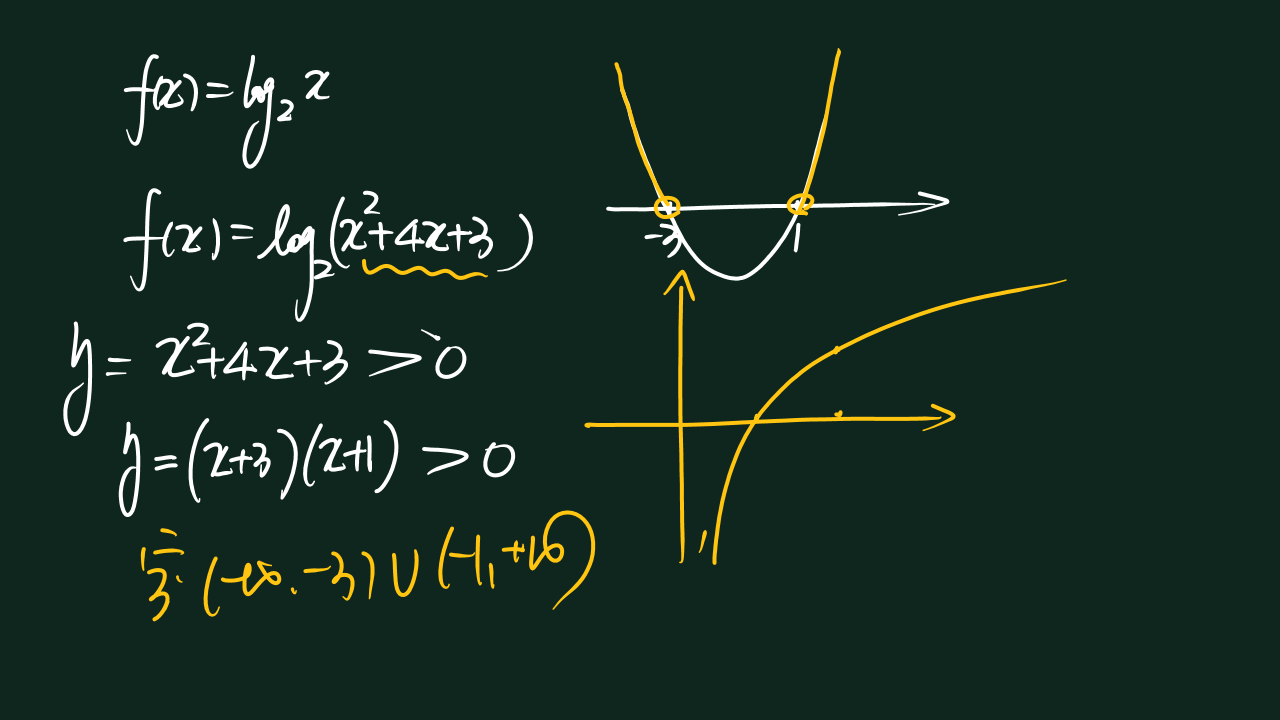 f(x)=log₂x
f(x)=log₂(x²+4x+3)
y=x²+4x+3>0
y=(x+3)(x+1)>0
(-∞.-3)∪(-1,+∞)
-3 1